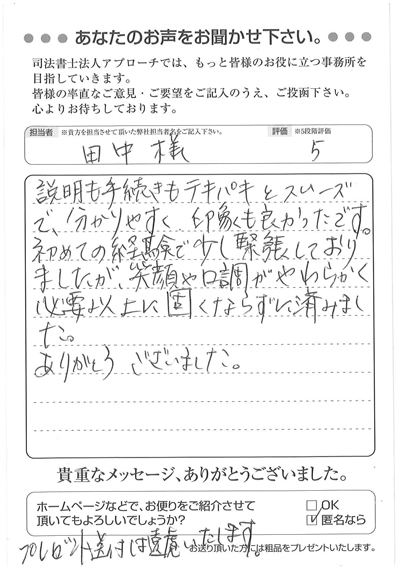 ●●● あなたのお声をお聞かせ下さい。 ●●●
司法書士法人アプローチでは、もっと皆様のお役に立つ事務所を
目指していきます。
皆様の率直なご意見・ご要望をご記入のうえ、ご投函下さい。
心よりお待ちしております。
担当者 ※貴方を担当させて頂いた弊社担当者名をご記入下さい。
評価 ※5段階評価
田中様
5
説明も手続きもテキパキとスムーズ
で、分かりやすく 印象も良かったです。
初めての経験で少し緊張しており
ましたが、笑顔や口調がやわらかく
必要以上に固くならずに済みまし
た。
ありがとうございました。
貴重なメッセージ、ありがとうございました。
ホームページなどで、お便りをご紹介させて
頂いてもよろしいでしょうか?
□ OK
☑ 匿名なら
プレゼント送付は遠慮いたします。
お送り頂いた方には粗品をプレゼントいたします。